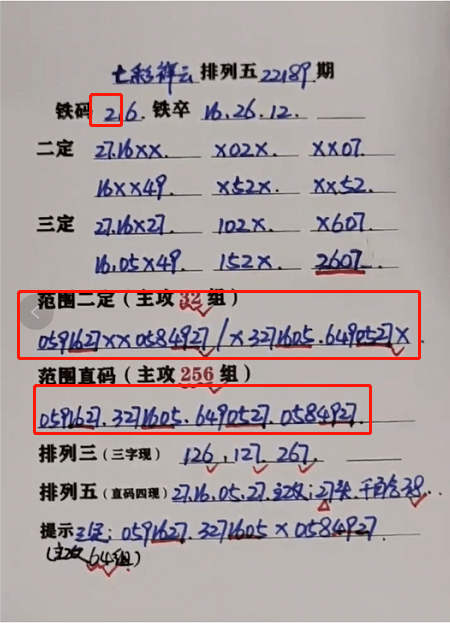 七彩祥云 排列五 22189期
铁码 2.6. 铁卒 16.26.12.
二定 27.16xx. x02x. xx07.
16xx49. x52x. xx52.
三定 27.16x27. 102x. x607.
16.05x49. 152x. 2607.
范围二定(主攻32组)
0591627xx0584927/x3271605.6490527x.
范围直码(主攻256组)
0591627.3271605.6490527.0584927.
排列三(三字现) 126.127.267.
排列五(直码四现)27.16.05.27.主攻:27头.千百合38..
提示三定:0591627.3271605x0584927.
(主攻64组)